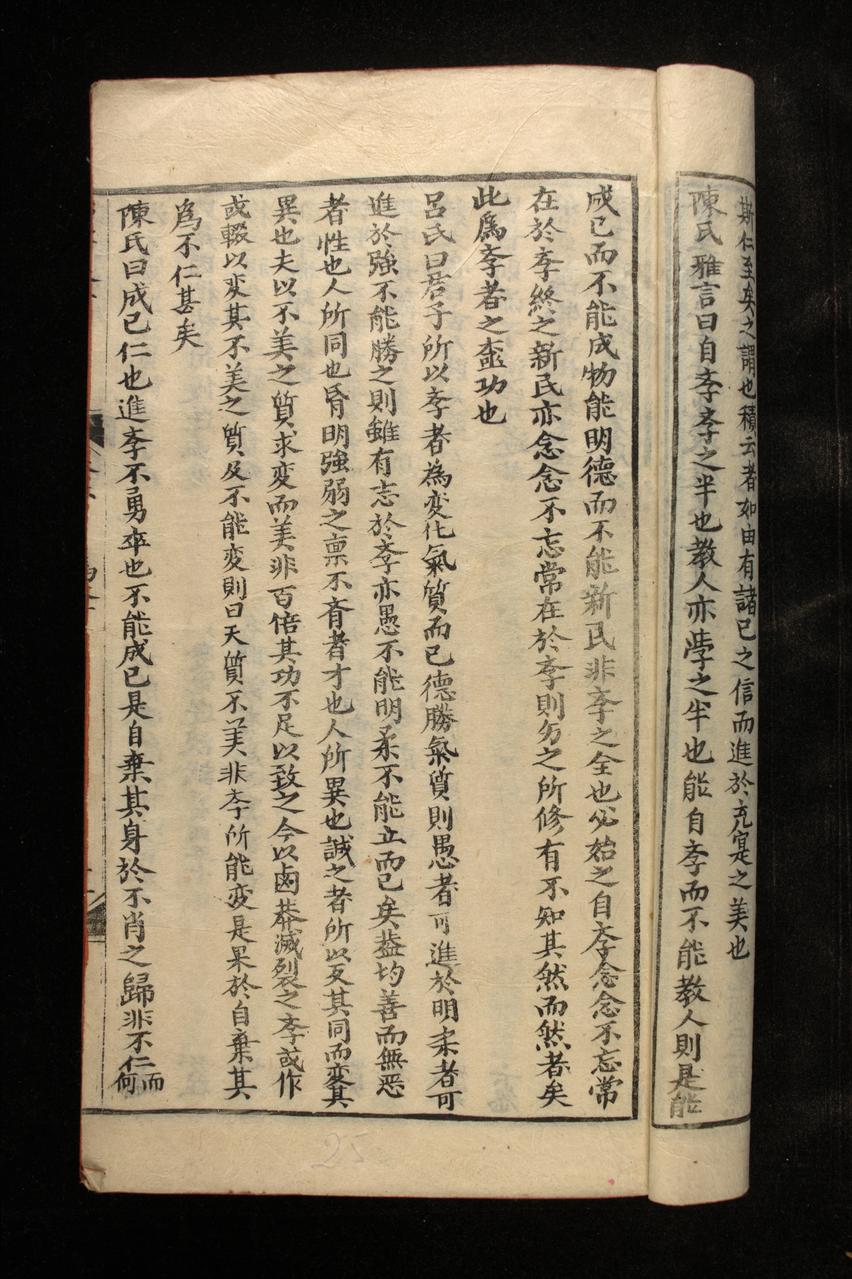 斯仁至矣之謂也積云者如由有諸己之信而進於充寔之美也
陳氏雅言曰自斈斈之半也教人亦學之半也能自斈而不能教人則是能
成己而不能成物能明德而不能新民非斈之全也必始之自斈念念不忘常
在於斈終之新民亦念念不忘常在於斈則之所修有不知其然而然者矣
此爲斈者之功也
呂氏曰君子所以斈者為变化氣質而已德勝氣質則愚者可進於明柔者可
進於強不能勝之則雖有志於斈亦愚不能明柔不能立而已矣盖均善而無恶
者性也人所同也昏明強弱之禀不斉者才也人所異也誠之者所以反其同而变其
異也夫以不美之質求变而美非百倍其功不足以致之今以鹵莽滅裂之斈或作
或輟以变其不美之質及不能变則曰天質不美非斈所能变是果於自棄其
爲不仁甚矣
陳氏曰成己仁也進斈不勇卒也不能成己是自棄其身於不肖之歸非不仁而何
25